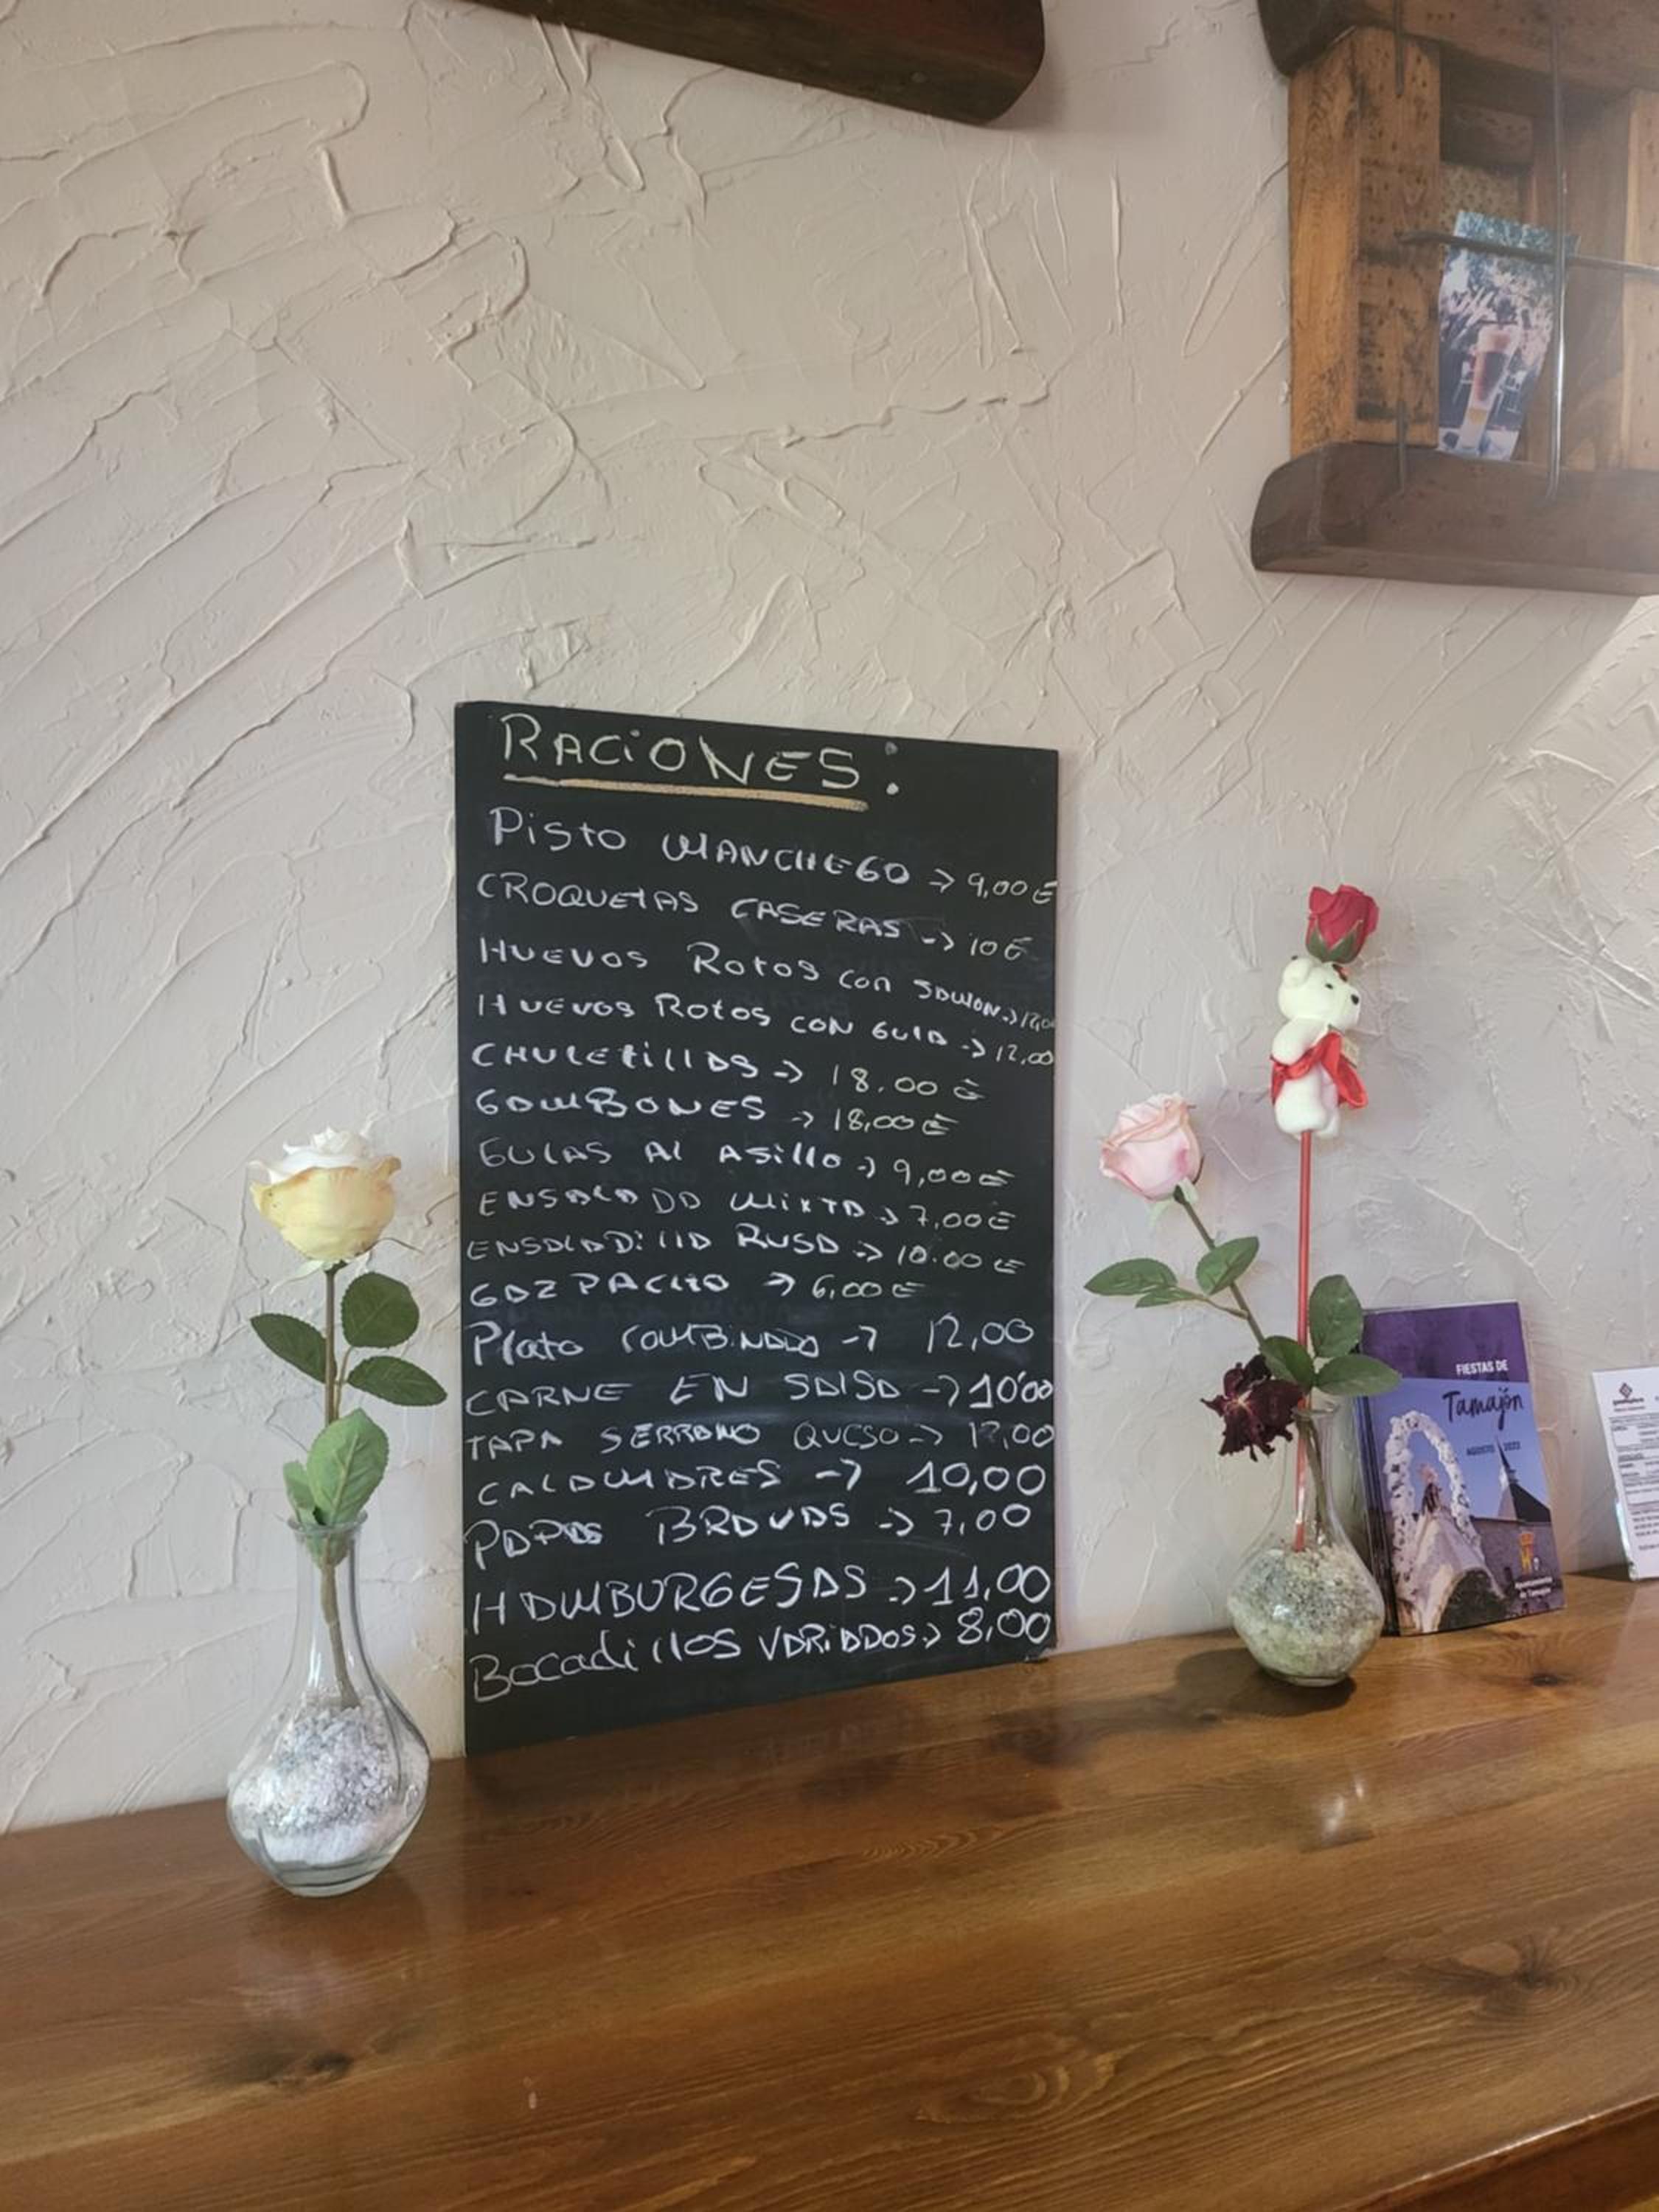 RACiONES:
Pisto MANCHEGO -> 9,00 €
CROQUETAS CASERAS -> 10 €
HUEVOS Rotos con JAMON -> 12,00
HUEVOS Rotos CON GULA -> 12,00
CHULEtillAS -> 18.00 €
GAMBONES -> 18,00 €
GULAS Al Asillo -> 9,00 €
ENSALADA MiXTA -> 7,00 €
ENSALADillA RUSA -> 10.00 €
GAZPACHO -> 6,00 €
Plato COMBiNADO -> 12,00
CARNE EN SALSA -> 10'00
TAPA SERRANO QUESO -> 12,00
CALAMARES -> 10,00
PAPAS BRAVAS -> 7,00
HAMBURGESAS -> 11,00
Bocadillos VARiADOS -> 8,00
FIESTAS DE
Tamajón
AGOSTO 2022
Ayuntamiento
de Tamajón